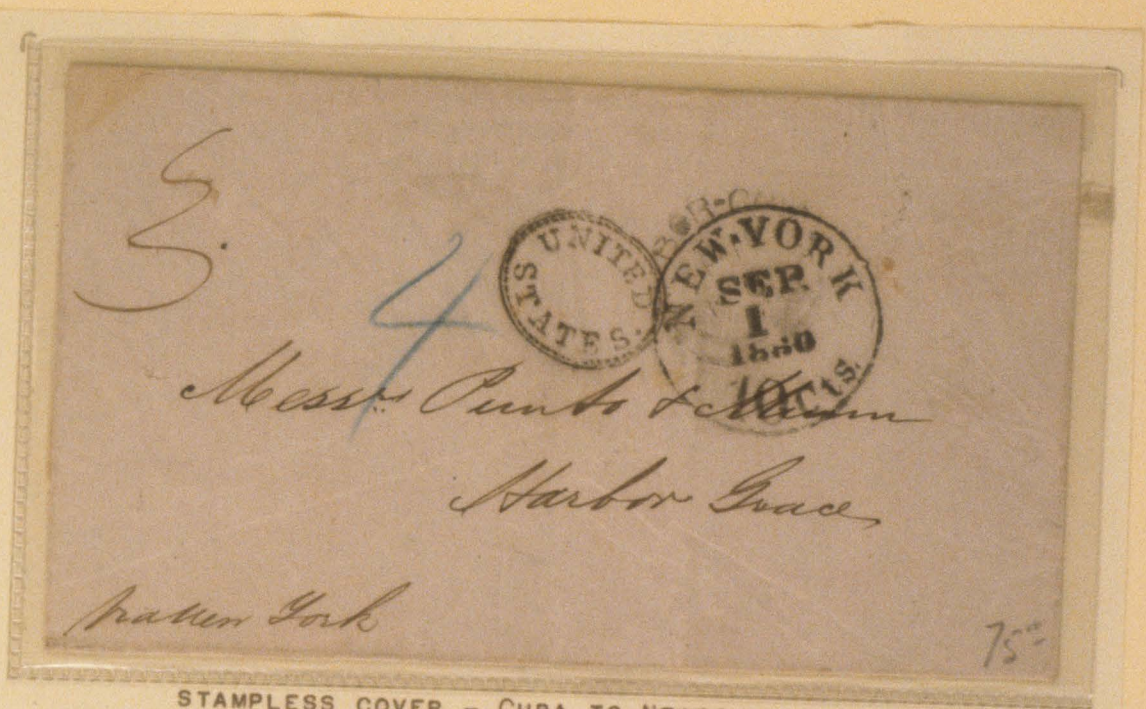 UNITED STATES.
NEW-YORK
SEP.
1
1860
10 Cts.
4
Messrs Punto & Munn
Harbor Grace
via New York
75 00
STAMPLESS COVER - CUBA TO